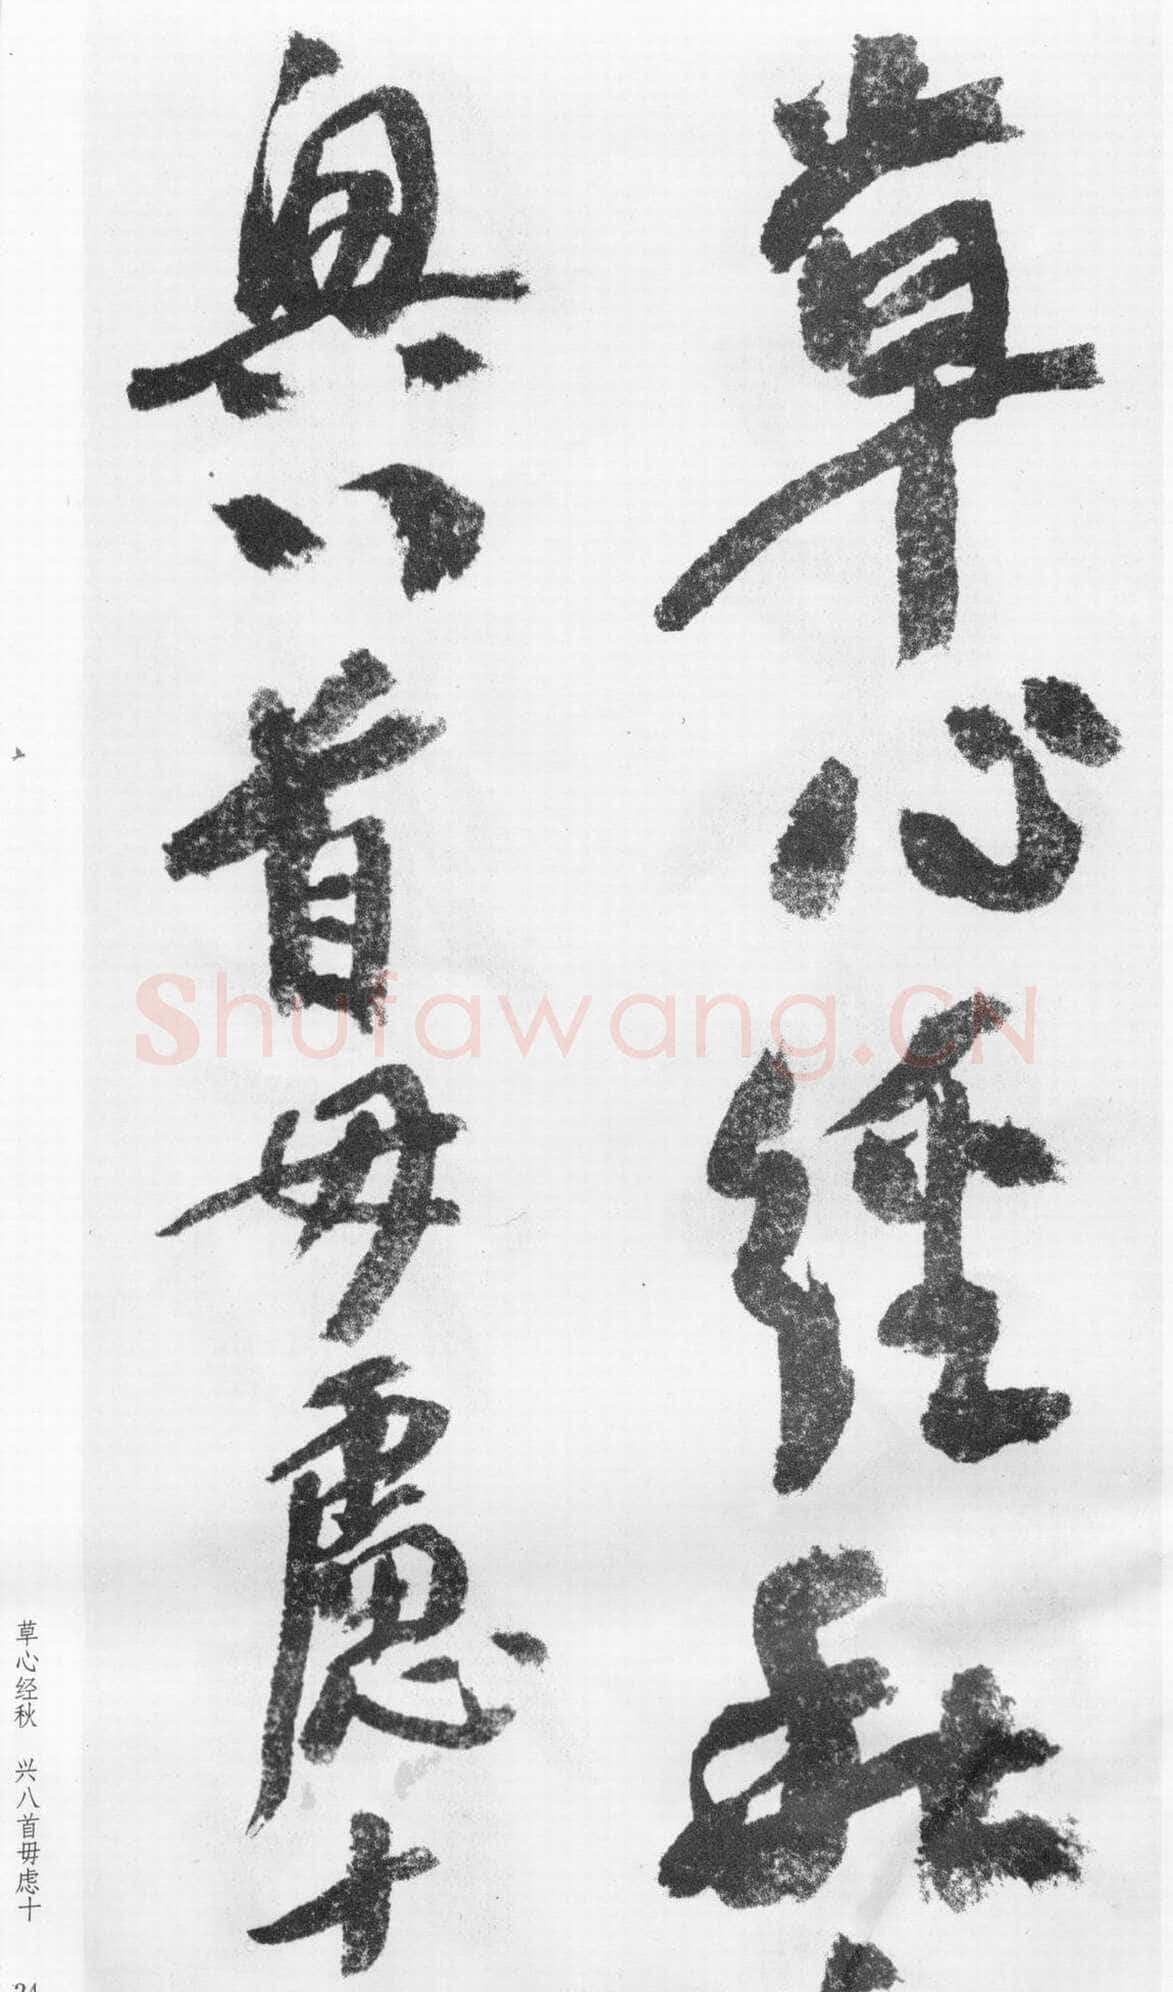 草心經秋
興八首毋慮十
Shufawang.CN
草心经秋 兴八首毋虑十
24